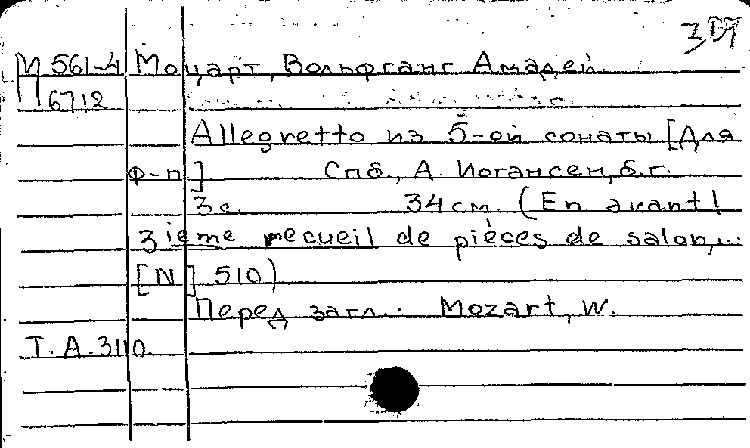 М 561-4 Моцарт, Вольфганг Амадей
П 6712
Allegretto из 5-ой сонаты [Для
ф-п] Спб., А. Иогансен, б.г.
3с. 34см. (En avant!
3ieme recueil de pièces de salon,...
[N] 510)
Перед загл.: Mozart, W.
Т.А.3110.